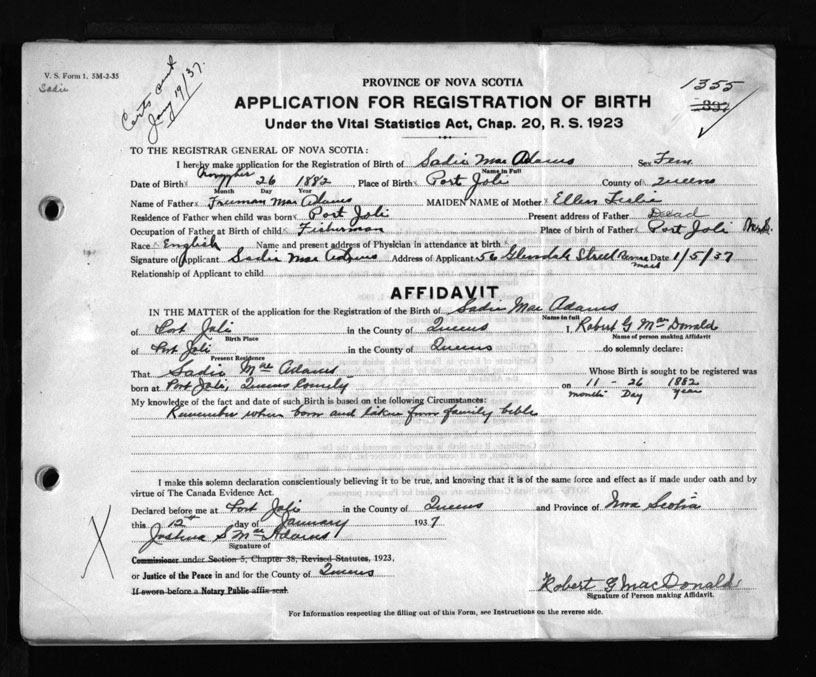 V. S. Form 1. 5M-2-35
Sadie
Certs sent
Jany 19/37.
1355
837
PROVINCE OF NOVA SCOTIA
APPLICATION FOR REGISTRATION OF BIRTH
Under the Vital Statistics Act, Chap. 20, R. S. 1923
TO THE REGISTRAR GENERAL OF NOVA SCOTIA:
I hereby make application for the Registration of Birth of Sadie Mac Adams Sex Fem.
Name in Full
November
Date of Birth 11 26 1882, Place of Birth Port Joli County of Queens
Month Day Year
Name of Father Freeman Mac Adams MAIDEN NAME of Mother Ellen Leslie
Residence of Father when child was born Port Joli Present address of Father Dead
Occupation of Father at Birth of child Fisherman Place of birth of Father Port Joli N.S.
Race English Name and present address of Physician in attendance at birth
Signature of Applicant Sadie Mac Adams Address of Applicant 56 Glendale Street Date 1/5/37
Mass
Relationship of Applicant to child
AFFIDAVIT
IN THE MATTER of the application for the Registration of the Birth of Sadie Mac Adams
Name in full
of Port Joli in the County of Queens I, Robert G MacDonald
Birth Place Name of person making Affidavit
of Port Joli in the County of Queens do solemnly declare:
Present Residence
That Sadie Mac Adams Whose Birth is sought to be registered was
born at Port Joli, Queens County on 11 - 26 1882
month Day year
My knowledge of the fact and date of such Birth is based on the following Circumstances:
Remember when born and taken from family bible
I make this solemn declaration conscientiously believing it to be true, and knowing that it is of the same force and effect as if made under oath and by
virtue of The Canada Evidence Act.
Declared before me at Port Joli in the County of Queens and Province of Nova Scotia
this 12th day of January 1937
Joshua S MacAdams
Signature of
Commissioner under Section 5, Chapter 38, Revised Statutes, 1923,
or Justice of the Peace in and for the County of Queens
If sworn before a Notary Public affix seal.
X
Robert G MacDonald
Signature of Person making Affidavit.
For Information respecting the filling out of this Form, see Instructions on the reverse side.